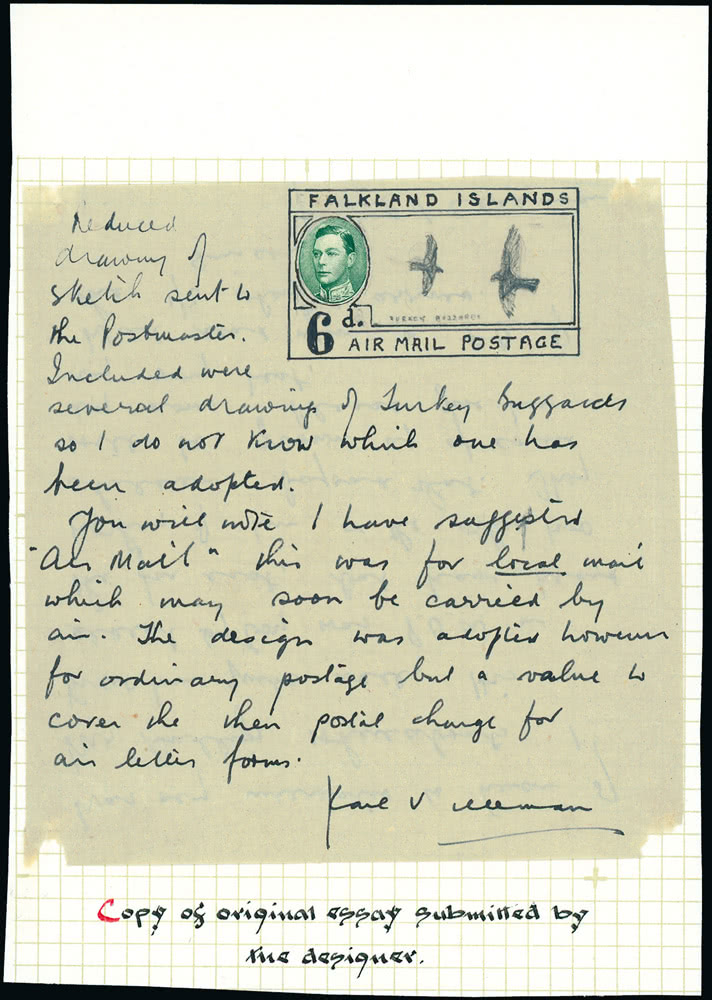 FALKLAND ISLANDS
6d.
TURKEY BUZZARDS
AIR MAIL POSTAGE
Reduced
drawing of
sketch sent to
the Postmaster.
Included were
several drawings of Turkey Buzzards
so I do not know which one has
been adopted.
You will note I have suggested
"Air Mail" this was for local mail
which may soon be carried by
air. The design was adopted however
for ordinary postage but a value to
cover the then postal charge for
air letter forms.
Karl V
Copy of original essay submitted by
the designer.